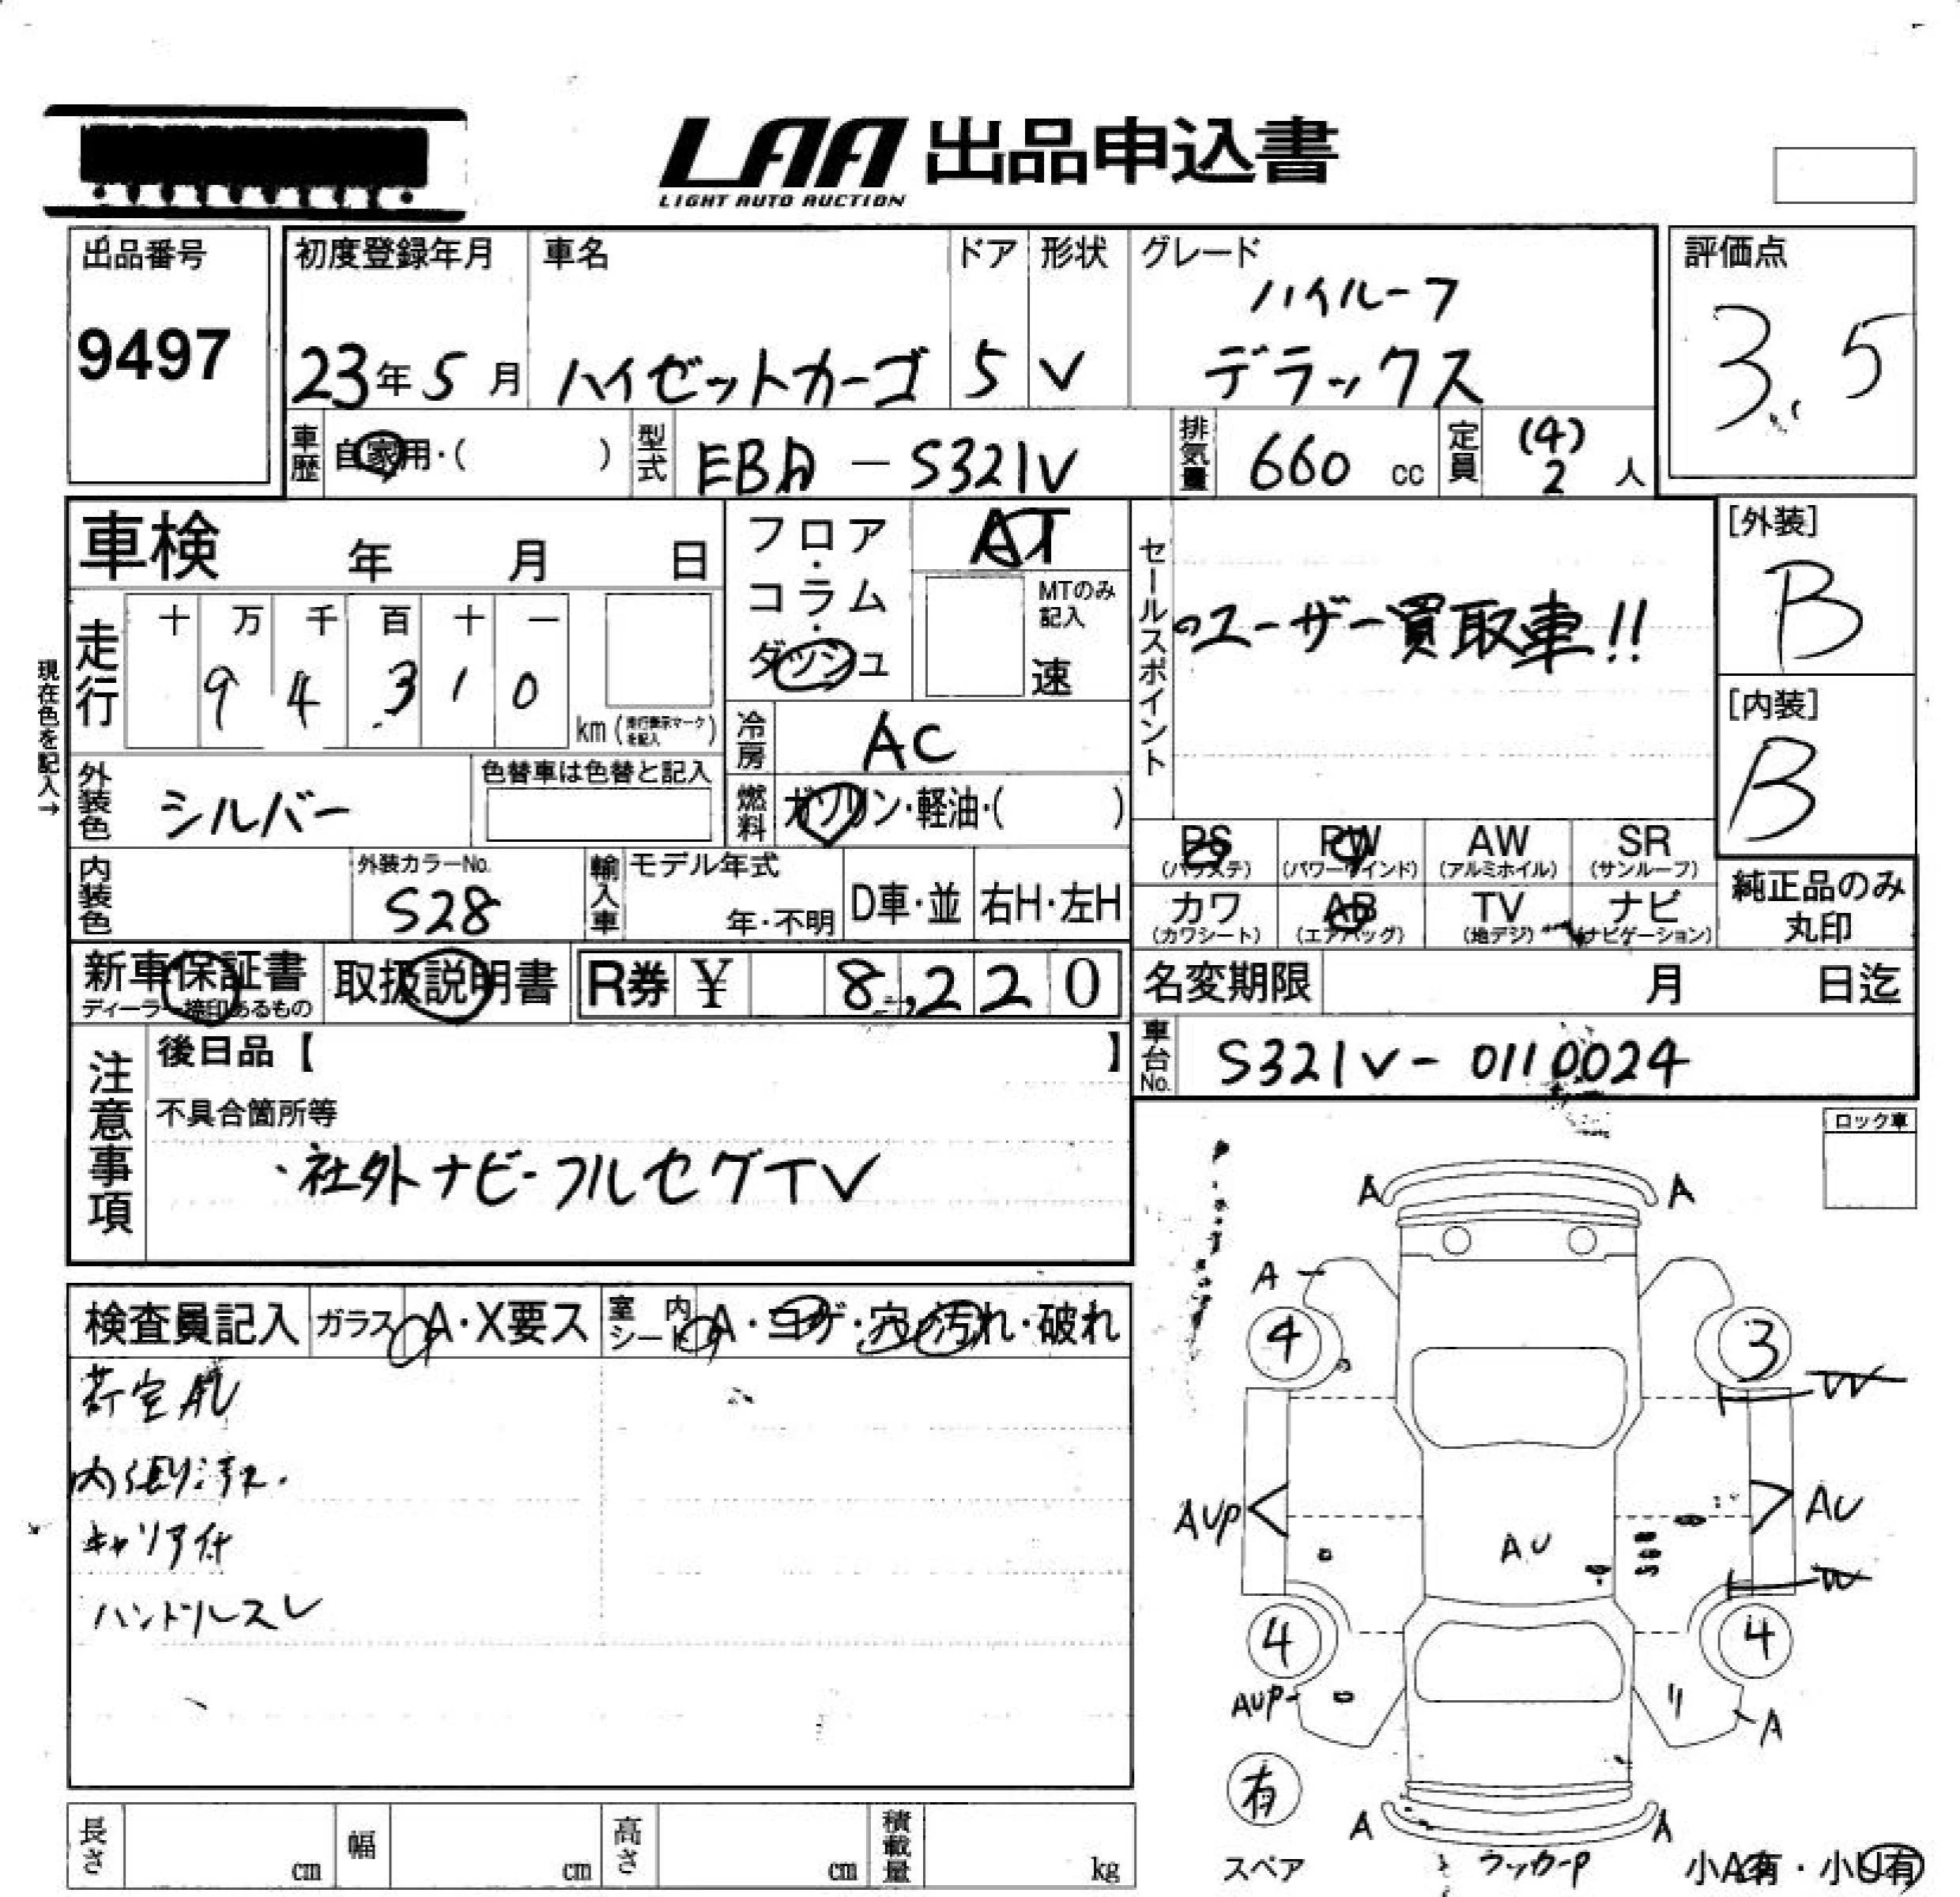 LAA 出品申込書
LIGHT AUTO AUCTION
出品番号
9497
初度登録年月
23年5月
車名
ハイゼットカーゴ
ドア
5
形状
V
グレード
ハイルーフ
デラックス
評価点
3.5
車歴
自家用・( )
型式
EBA-S321V
排気量
660 cc
定員
(4)
2 人
車検 年 月 日
フロア・コラム・ダッシュ
AT
MTのみ記入
速
セールスポイント
ユーザー買取車!!
[外装]
B
[内装]
B
現在色を記入→
走行
十 万 千 百 十 一
9 4 3 1 0
km (走行表示マークを記入)
冷房
AC
外装色
シルバー
色替車は色替と記入
燃料
ガソリン・軽油・( )
PS
(パワステ)
PW
(パワーウインド)
AW
(アルミホイル)
SR
(サンルーフ)
カワ
(カワシート)
AB
(エアバッグ)
TV
(地デジ)
ナビ
(ナビゲーション)
純正品のみ
丸印
内装色
外装カラーNo.
S28
輸入車
モデル年式
年・不明
D車・並
右H・左H
新車保証書
ディーラー捺印あるもの
取扱説明書
R券 ¥ 8,220
名変期限 月 日迄
車台No.
S321V-0110024
注意事項
後日品【 】
不具合箇所等
・社外ナビ-フルセグTV
ロック車
検査員記入
ガラス A・X要ス
室内シート A・コゲ・穴・汚れ・破れ
荷室AU
内張り汚れ.
キャリア付
ハンドルスレ
A A
A
4 3
W
AUP AU
AU
W
4 4
AUP A
有
スペア
A A
ラッカーP
小A有・小U有
長さ cm
幅 cm
高さ cm
積載量 kg